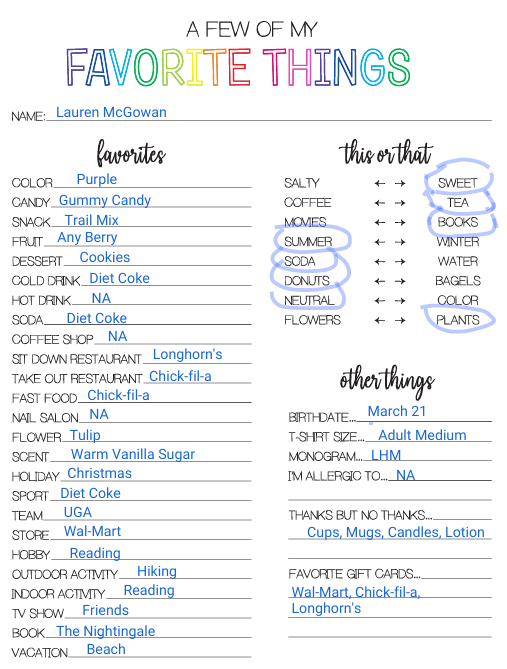 A FEW OF MY
FAVORITE THINGS
NAME: Lauren McGowan
favorites
COLOR Purple
CANDY Gummy Candy
SNACK Trail Mix
FRUIT Any Berry
DESSERT Cookies
COLD DRINK Diet Coke
HOT DRINK NA
SODA Diet Coke
COFFEE SHOP NA
SIT DOWN RESTAURANT Longhorn's
TAKE OUT RESTAURANT Chick-fil-a
FAST FOOD Chick-fil-a
NAIL SALON NA
FLOWER Tulip
SCENT Warm Vanilla Sugar
HOLIDAY Christmas
SPORT Diet Coke
TEAM UGA
STORE Wal-Mart
HOBBY Reading
OUTDOOR ACTIVITY Hiking
INDOOR ACTIVITY Reading
TV SHOW Friends
BOOK The Nightingale
VACATION Beach
this or that
SALTY ← → SWEET
COFFEE ← → TEA
MOVIES ← → BOOKS
SUMMER ← → WINTER
SODA ← → WATER
DONUTS ← → BAGELS
NEUTRAL ← → COLOR
FLOWERS ← → PLANTS
other things
BIRTHDATE... March 21
T-SHIRT SIZE... Adult Medium
MONOGRAM... LHM
I'M ALLERGIC TO... NA
THANKS BUT NO THANKS...
Cups, Mugs, Candles, Lotion
FAVORITE GIFT CARDS...
Wal-Mart, Chick-fil-a,
Longhorn's